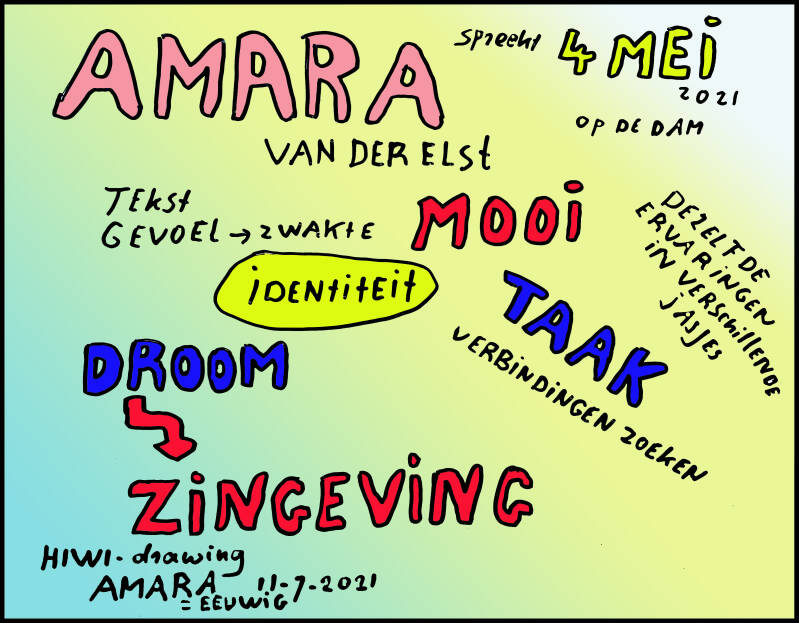 AMARA
spreekt 4 MEi
2021
OP DE DAM
VAN DER ELSt
TEkSt
GEVOEL → ZWAKtE
MOOi
iDENtitEit
DEZELFDE
ERVARiNGEN
iN VERSchillENDE
jASjES
TAAK
VERBiNDiNGEN ZOEKEN
DROOM
ZiNGEViNG
HIWI-drawing
AMARA 11-7-2021
= EEUWiG